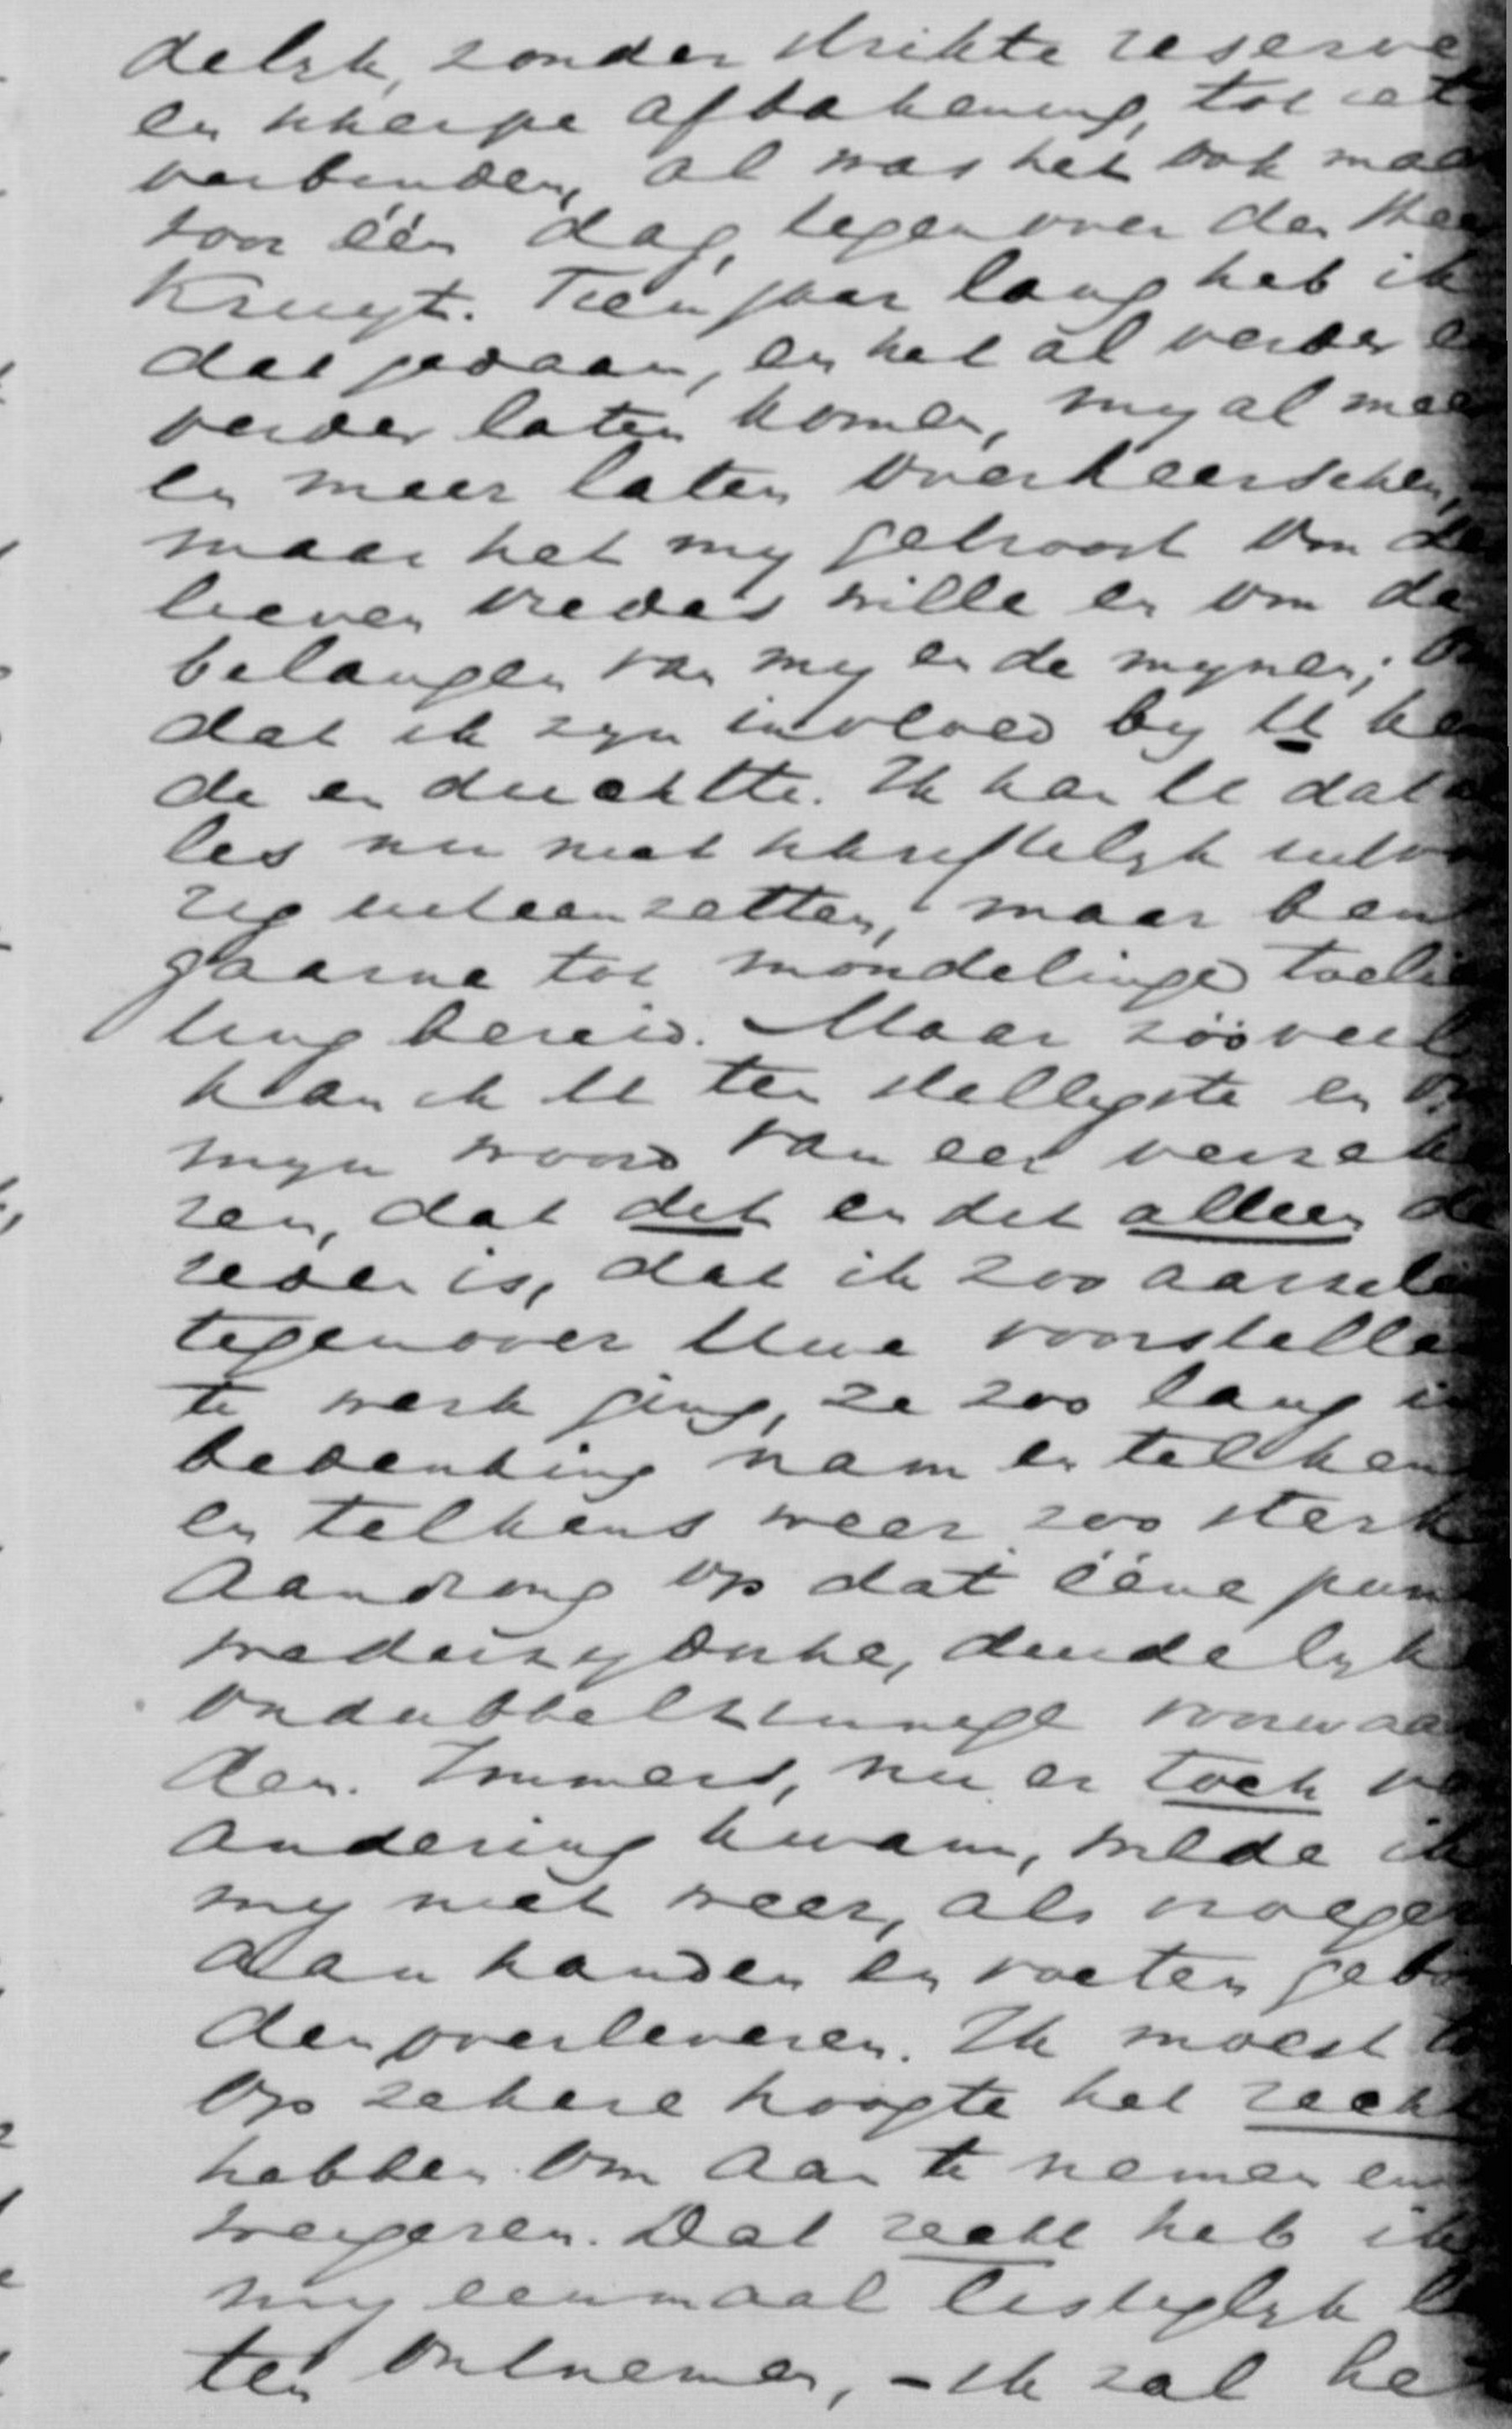 delyk, zonder strikte reserve
en scherpe afbakening, tot iets
verbinden, al was het ook maar
voor één dag, tegenover den Heer
Kruyt. Tien jaar lang heb ik
dat gedaan, en het al verder en
verder laten komen, my al meer
en meer laten overheerschen,
maar het my getroost om de
lieven vredes wille en om de
belangen van my en de mynen; om
dat ik zyn invloed by U ken
de en duchtte. Ik kan U dat al
les nu niet schriftelyk uitvoe
rig uiteenzetten, maar ben
gaarne tot mondelinge toelich
ting bereid. Maar zóóveel
kan ik U ten stelligste en op
myn woord van eer verzeke
ren, dat dit en dit alleen de
reden is, dat ik zoo aarzelend
tegenover Uwe voorstellen
te werk ging, ze zoo lang in
bedenking nam en telkens
en telkens weer zoo sterk
aandrong op dat ééne punt
wederzydsche, duidelyke
ondubbelzinnige voorwaar
den. Immers, nu er toch ver
andering kwam, wilde ik
my niet weer, als vroeger
aan handen en voeten gebon
den overleveren. Ik moest tot
op zekere hoogte het recht
hebben om aan te nemen en te
weigeren. Dat recht heb ik
my eenmaal listiglyk la
ten ontnemen, - ik zal het